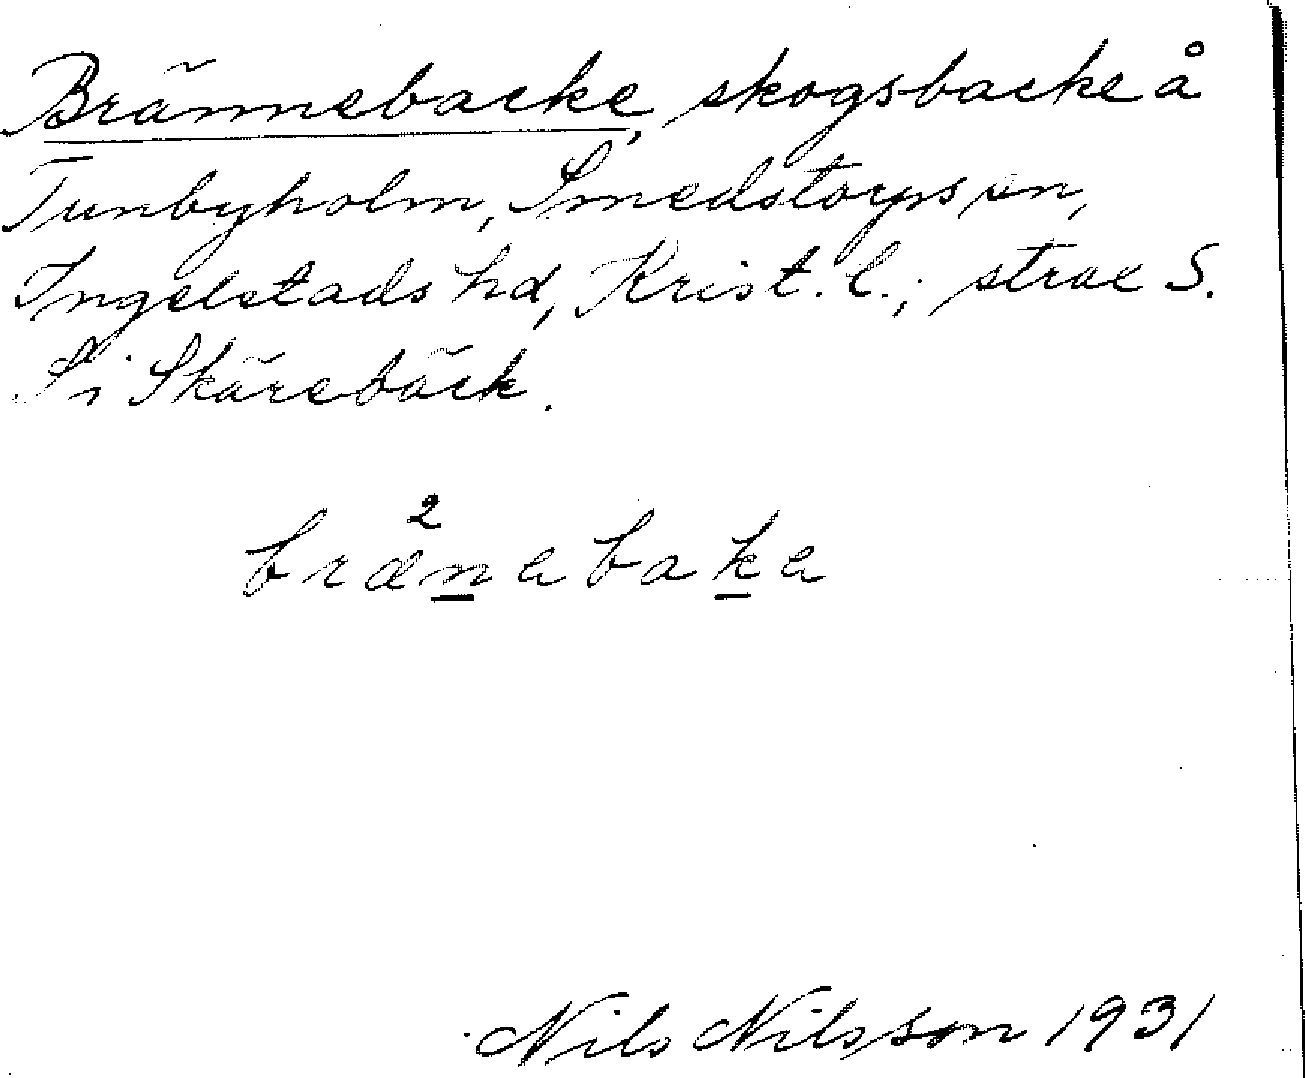 Brännebacke, skogsbacke å
Tunbyholm, Smedstorps sn,
Ingelstads hd, Krist. l.; strax S.
Skärebäck.
2
bränabaka
Nils Nilsson 1931